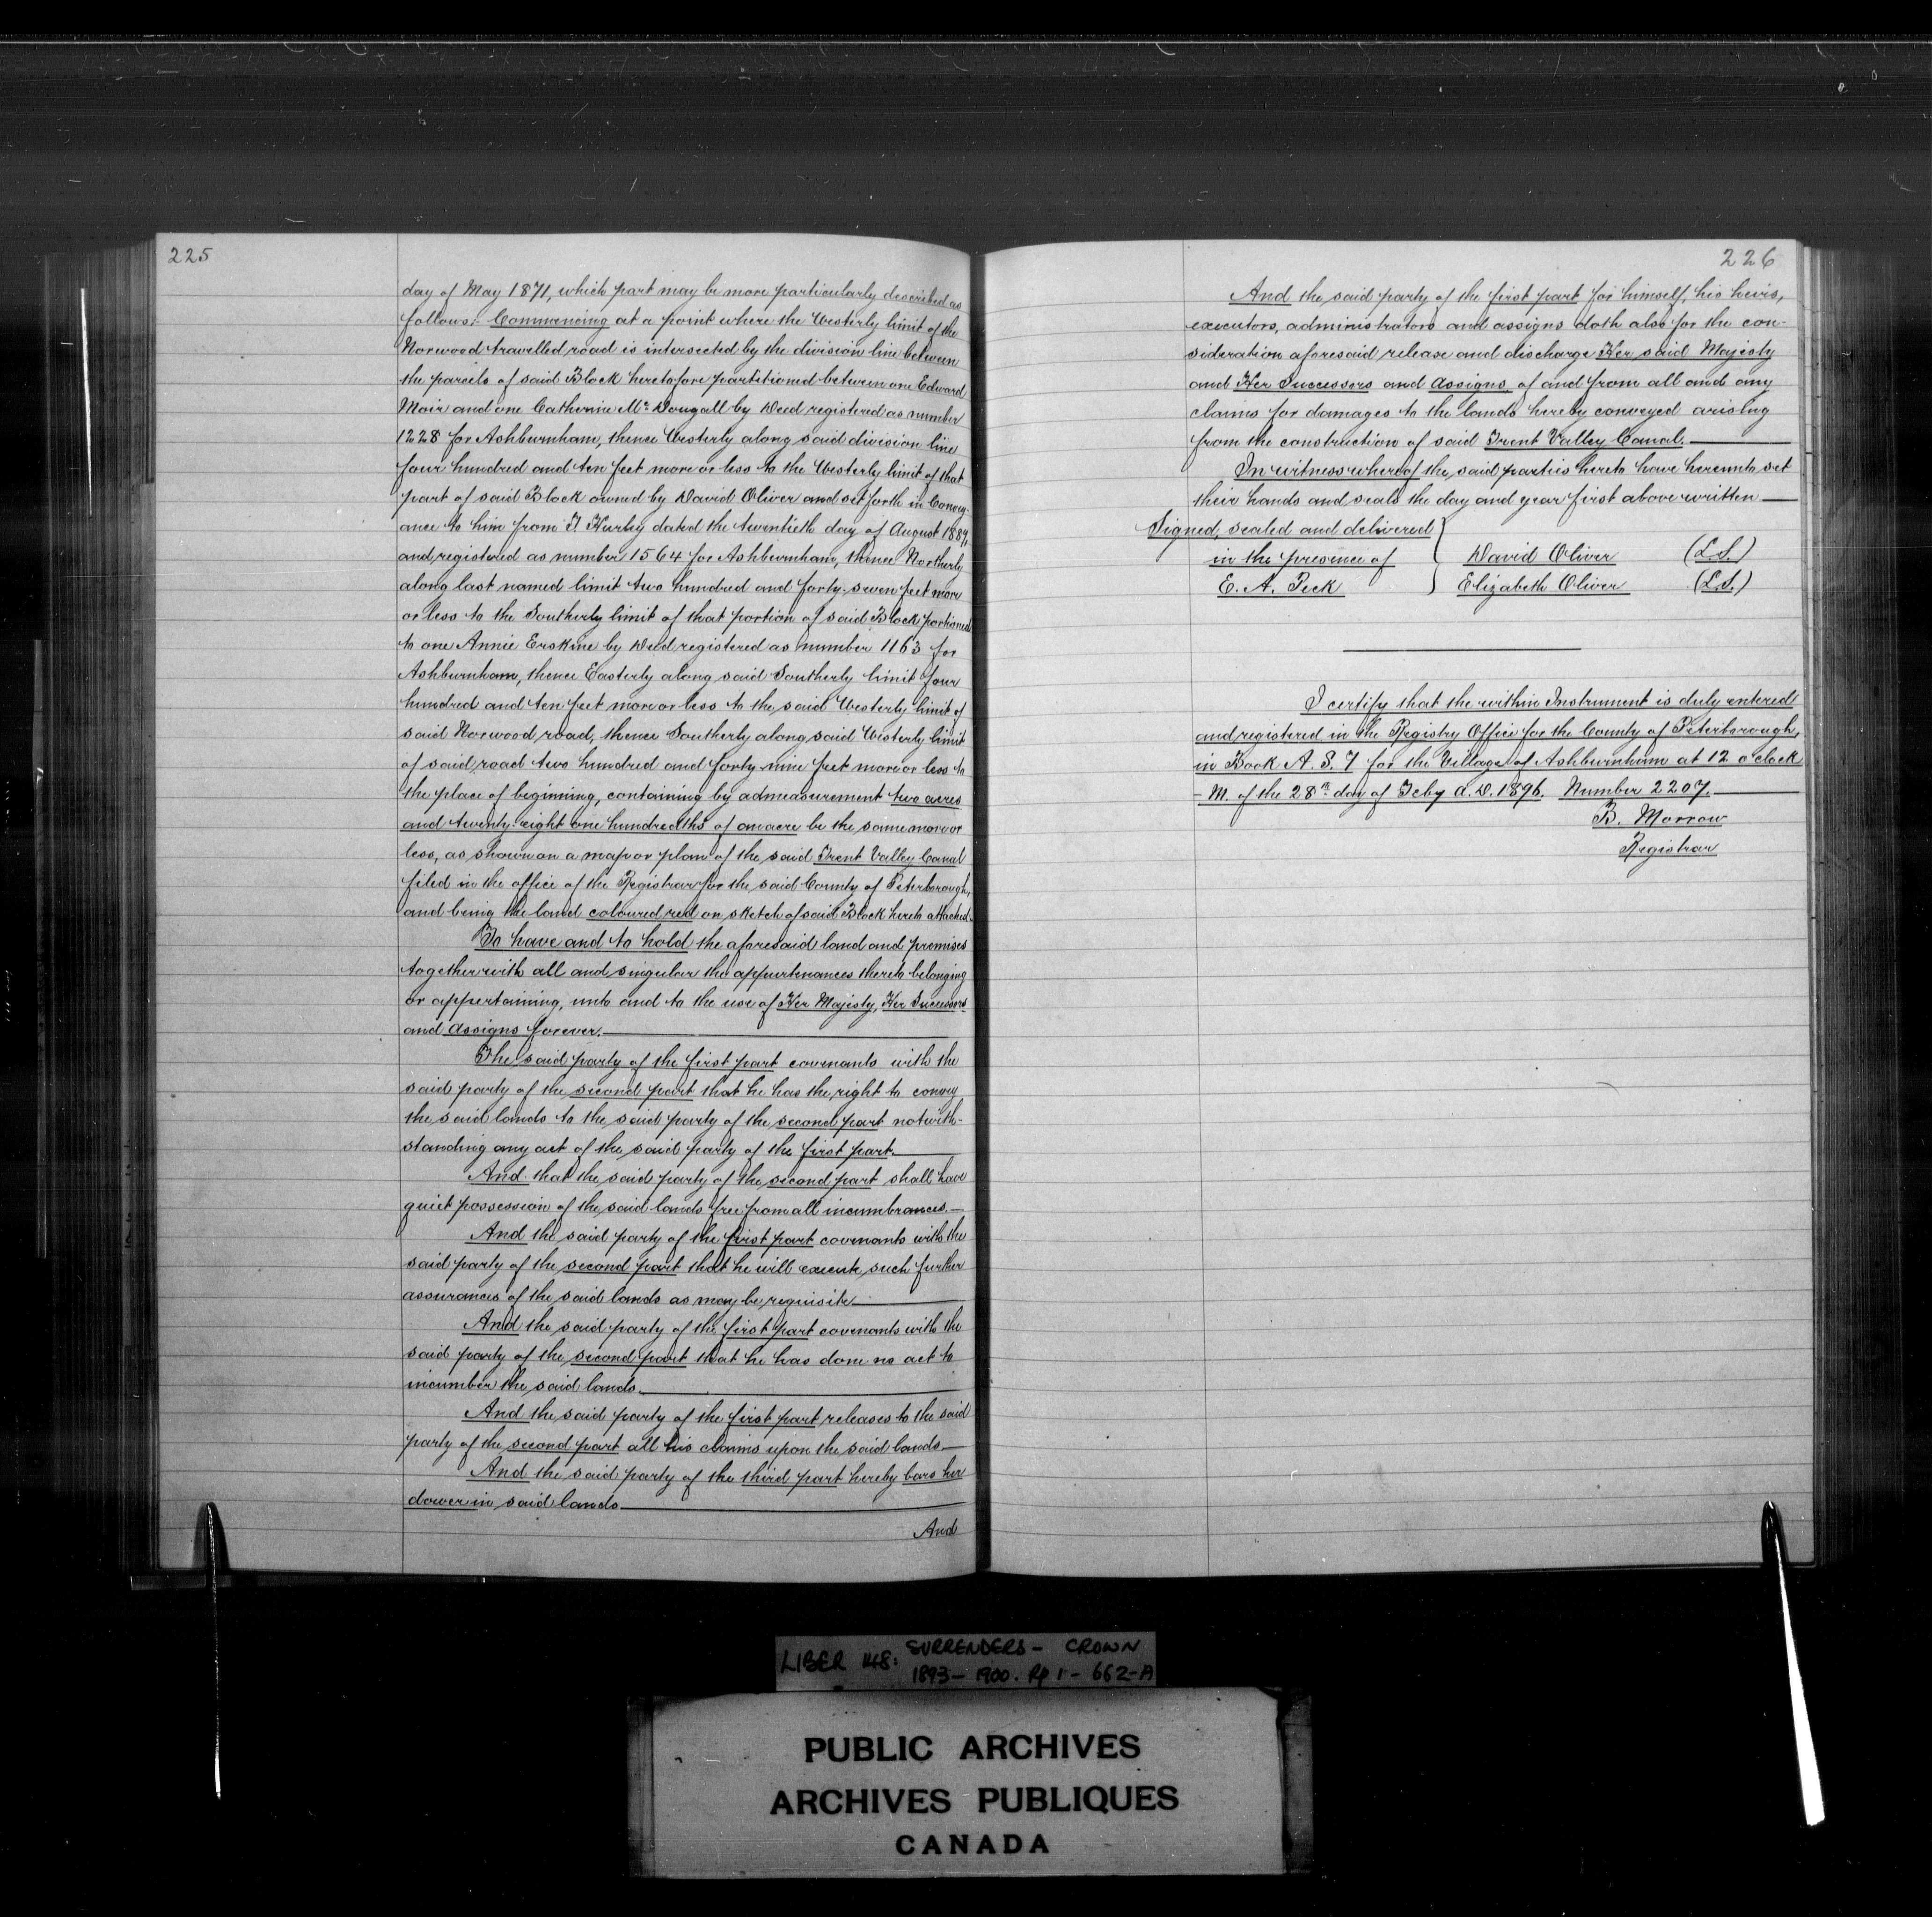 225
day of May 1871, which part may be more particularly described as
follows:- Commencing at a point where the Westerly limit of the
Norwood travelled road is intersected by the division line between
the parcels of said Block heretofore partitioned between one Edward
Moir and one Catherine Mc Dougall by Deed registered as number
1228 for Ashburnham, thence Westerly along said division line
four hundred and ten feet more or less to the Westerly limit of that
part of said Block owned by David Oliver and set forth in Convey-
ance to him from T. Hurley dated the twentieth day of August 1889,
and registered as number 1564 for Ashburnham, thence Northerly
along last named limit two hundred and forty-seven feet more
or less to the Southerly limit of that portion of said Block portioned
to one Annie Erskine by Deed registered as number 1163 for
Ashburnham, thence Easterly along said Southerly limit four
hundred and ten feet more or less to the said Westerly limit of
said Norwood road, thence Southerly along said Westerly limit
of said road two hundred and forty nine feet more or less to
the place of beginning, containing by admeasurement two acres
and twenty-eight one hundredths of an acre be the same more or
less, as shown on a map or plan of the said Trent Valley Canal
filed in the office of the Registrar for the said County of Peterborough,
and being the land coloured red on sketch of said Block hereto attached.
To have and to hold the aforesaid land and premises
together with all and singular the appurtenances thereto belonging
or appertaining, unto and to the use of Her Majesty, Her Successors
and Assigns forever.
The said party of the first part covenants with the
said party of the second part that he has the right to convey
the said lands to the said party of the second part notwith-
standing any act of the said party of the first part.
And that the said party of the second part shall have
quiet possession of the said lands free from all incumbrances.
And the said party of the first part covenants with the
said party of the second part that he will execute such further
assurances of the said lands as may be requisite
And the said party of the first part covenants with the
said party of the second part that he has done no act to
incumber the said lands.
And the said party of the first part releases to the said
party of the second part all his claims upon the said lands
And the said party of the third part hereby bars her
dower in said lands
And
226
And the said party of the first part for himself, his heirs,
executors, administrators and assigns doth also for the con-
sideration aforesaid release and discharge Her said Majesty
and Her Successors and Assigns of and from all and any
claims for damages to the lands hereby conveyed arising
from the construction of said Trent Valley Canal.
In witness whereof the said parties hereto have hereunto set
their hands and seals the day and year first above written
Signed, sealed and delivered
in the presence of David Oliver (L.S.)
E. A. Peck Elizabeth Oliver (L.S.)
I certify that the within Instrument is duly entered
and registered in the Registry Office for the County of Peterborough,
in Book A. S. 7 for the Village of Ashburnham at 12 o'clock
- M. of the 28th day of Feby A.D. 1896. Number 2207.
B. Morrow
Registrar
LIBER 148: SURRENDERS - CROWN
1893 - 1900. Pp 1 - 662-A
PUBLIC ARCHIVES
ARCHIVES PUBLIQUES
CANADA